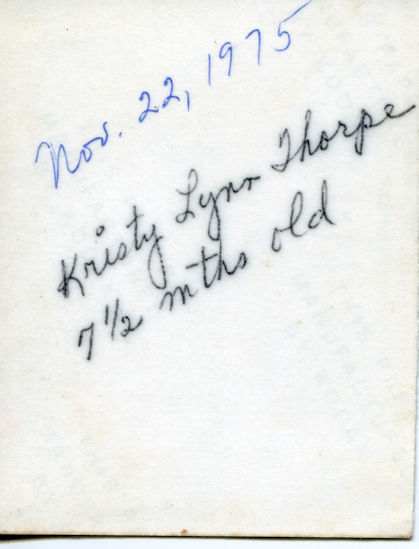 Nov. 22, 1975
Kristy Lynn Thorpe
7 1/2 mths old